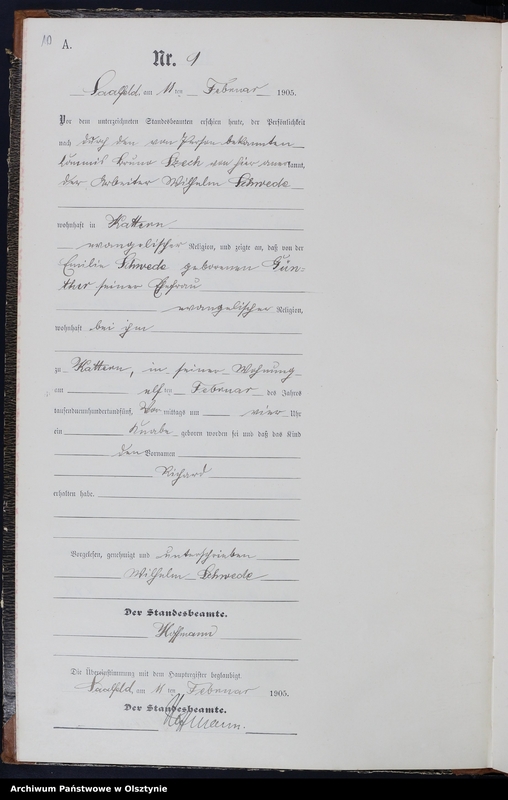 10
A.
Nr. 9
Saalfeld, am 11 ten Februar 1905.
Vor dem unterzeichneten Standesbeamten erschien heute, der Persönlichkeit
nach durch den von Person bekannten
Kommis Bruno Szech von hier anerkannt,
der Arbeiter Wilhelm Schwede
wohnhaft in Kattern
evangelischer Religion, und zeigte an, daß von der
Emilie Schwede geborenen Gün-
ther seiner Ehefrau
evangelischer Religion,
wohnhaft bei ihm
zu Kattern, in seiner Wohnung
am elf ten Februar des Jahres
tausendneunhundertundfünf, Vor mittags um vier Uhr
ein Knabe geboren worden sei und daß das Kind
den Vornamen
Richard
erhalten habe.
Vorgelesen, genehmigt und unterschrieben
Wilhelm Schwede
Der Standesbeamte.
Hoffmann
Die Übereinstimmung mit dem Hauptregister beglaubigt.
Saalfeld, am 11 ten Februar 1905.
Der Standesbeamte.
Hoffmann.
Archiwum Państwowe w Olsztynie